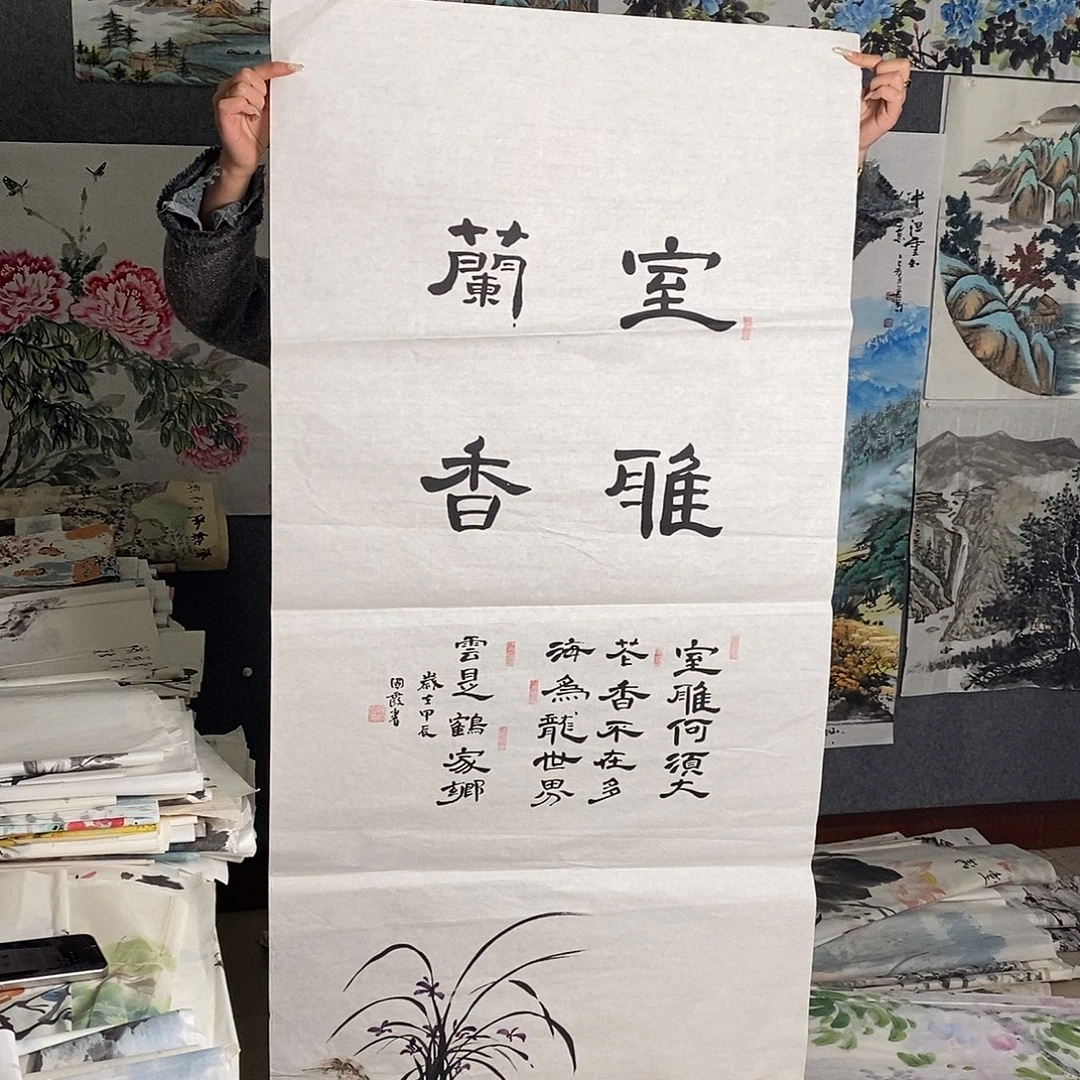 室雅
蘭香
室雅何須大
花香不在多
海為龍世界
雲是鶴家鄉
歲在甲辰
國霞書